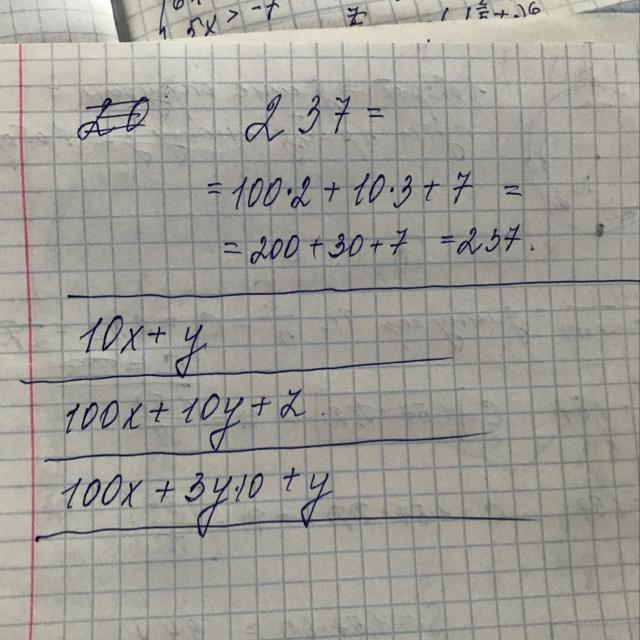 5x > -7
20 237 =
= 100·2 + 10·3 + 7 =
= 200 + 30 + 7 = 237.
10x + y
100x + 10y + z.
100x + 3y·10 + y